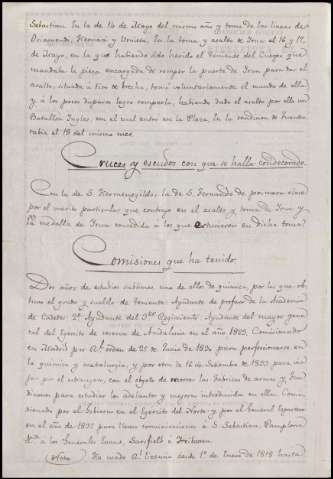 Sebastian. En la de 14 de Mayo del mismo año y toma de las lineas de
Oriamendi, Hernani y Urnieta. En la toma y asalto de Irun el 16 y 17,
de Mayo, en la que habiendo sido herido el Teniente del Cuerpo que
mandaba la pieza encargada de romper la puerta de Irun para dar el
asalto, situada a tiro de brecha, tomó voluntariamente el mando de ella
y a los pocos disparos logró romperla, habiendo dado el asalto por ella un
Batallon Ingles, con el cual entró en la Plaza. En la rendicion de Fuenter-
rabia el 18 del mismo mes.
Cruces y escudos con que se halla condecorado.
Con la de S. Hermenegildo, la de S. Fernando de primera clase
por el merito particular que contrajo en el asalto y toma de Irun y
la medalla de Irun concedida a los que estuvieron en dicha toma.
Comisiones que ha tenido.
Dos años de estudios sublimes, uno de ello de quimica, por los que ob-
tuvo el grado y sueldo de teniente. Ayudante de profesor de la Academia
de Cadetes. 2º Ayudante del 3er Regimiento. Ayudante del mayor gene-
ral del Ejército de reserva de Andalucia en el año 1823. Comisionado
en Madrid por Rl. orden de 25 de Junio de 1830 para perfeccionarse en
la quimica y metalurgia, y por otra de 16 de Setiembre de 1833 para via-
jar por el estrangero, con el objeto de recorrer las fabricas de armas y fun-
diciones para estudiar los adelantos y mejoras introducidas en ellas. Comi-
sionado por el Gobierno en el Ejército del Norte y por el General Espartero
en el año de 1837 para llevar comunicaciones a S. Sebastian, Pamplona
&ª a los Generales Evans, Sarsfield e Iribarren.
Nota Ha usado Rl. Licencia desde 1º de Enero de 1818 hasta